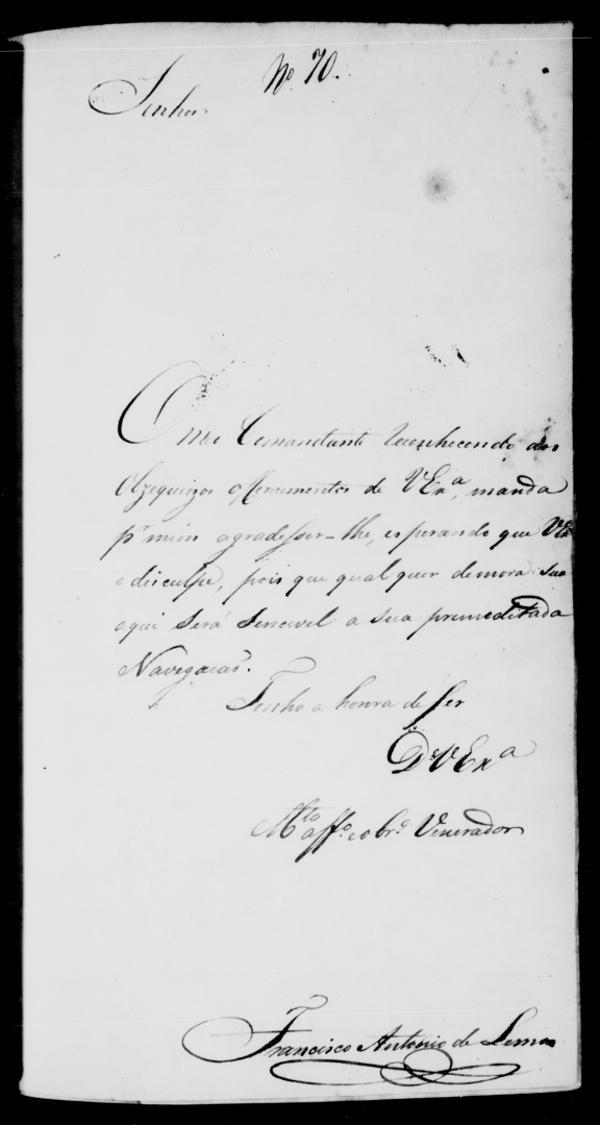 Nº 70.
Senhor
O meu Comandante reconhecendo dos
Obzequiozos offerecimentos de V Exª, manda
pr mim agradesser-lhe, esperando que V Exª
o disculpe, pois que qual quer demora sua
aqui será sencivel a sua premeditada
Navegacaõ.
Tenho a honra de ser
De V Exª
Mto affo e obrº Venerador
Francisco Antonio de Lemos